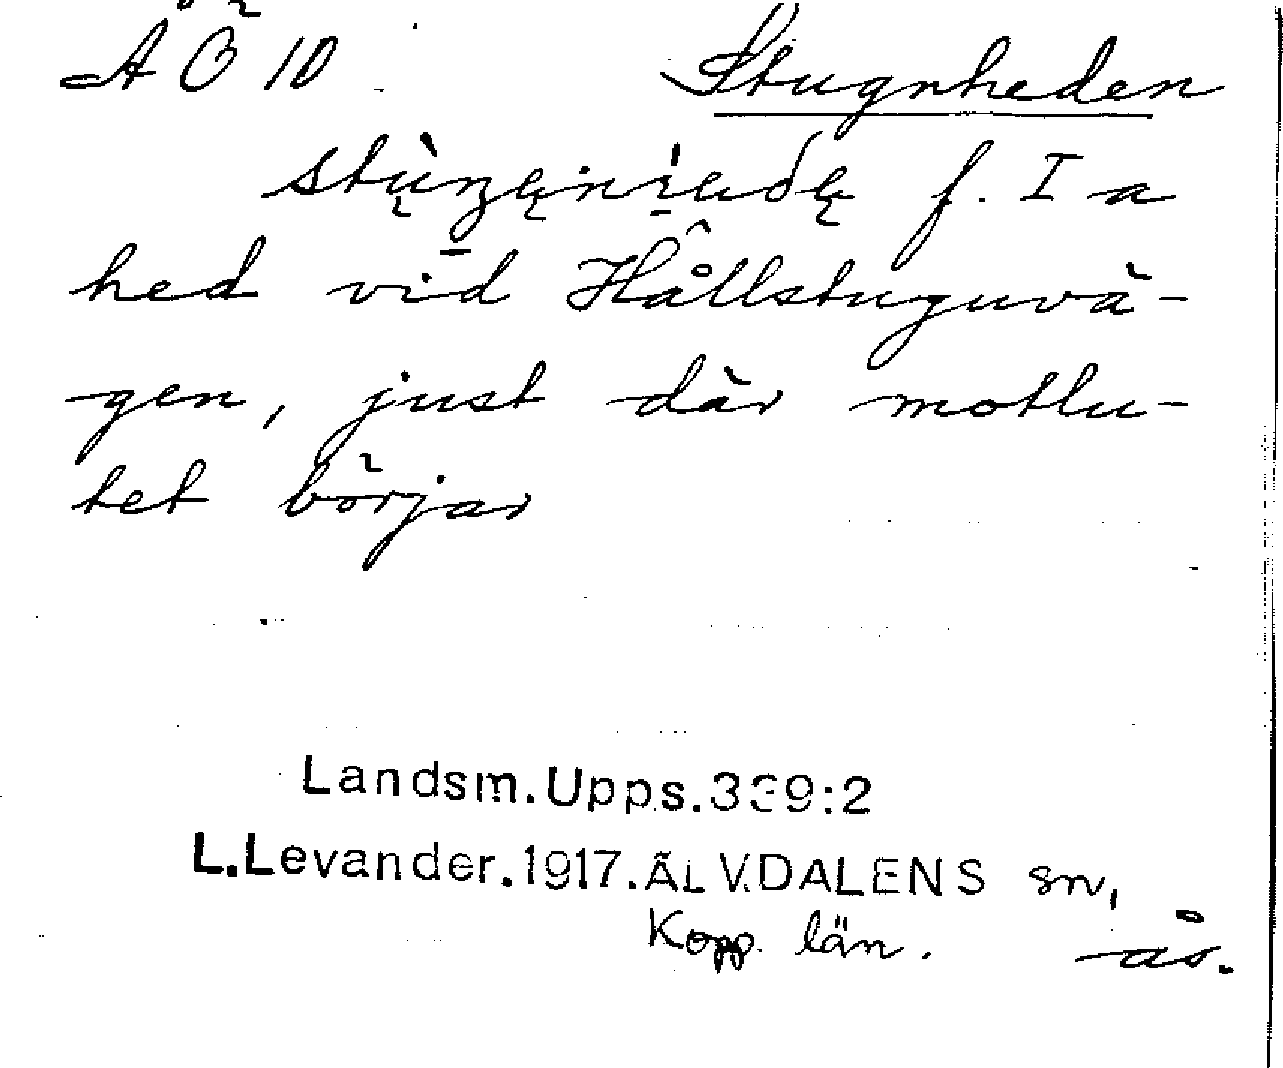 ÅÖ 10
Stugnheden
f. I a
hed vid Hållstuguvä-
gen, just där motlu-
tet börjar
Landsm.Upps.339:2
L.Levander.1917.ÄLVDALENS sn,
Kopp. län.
ås.